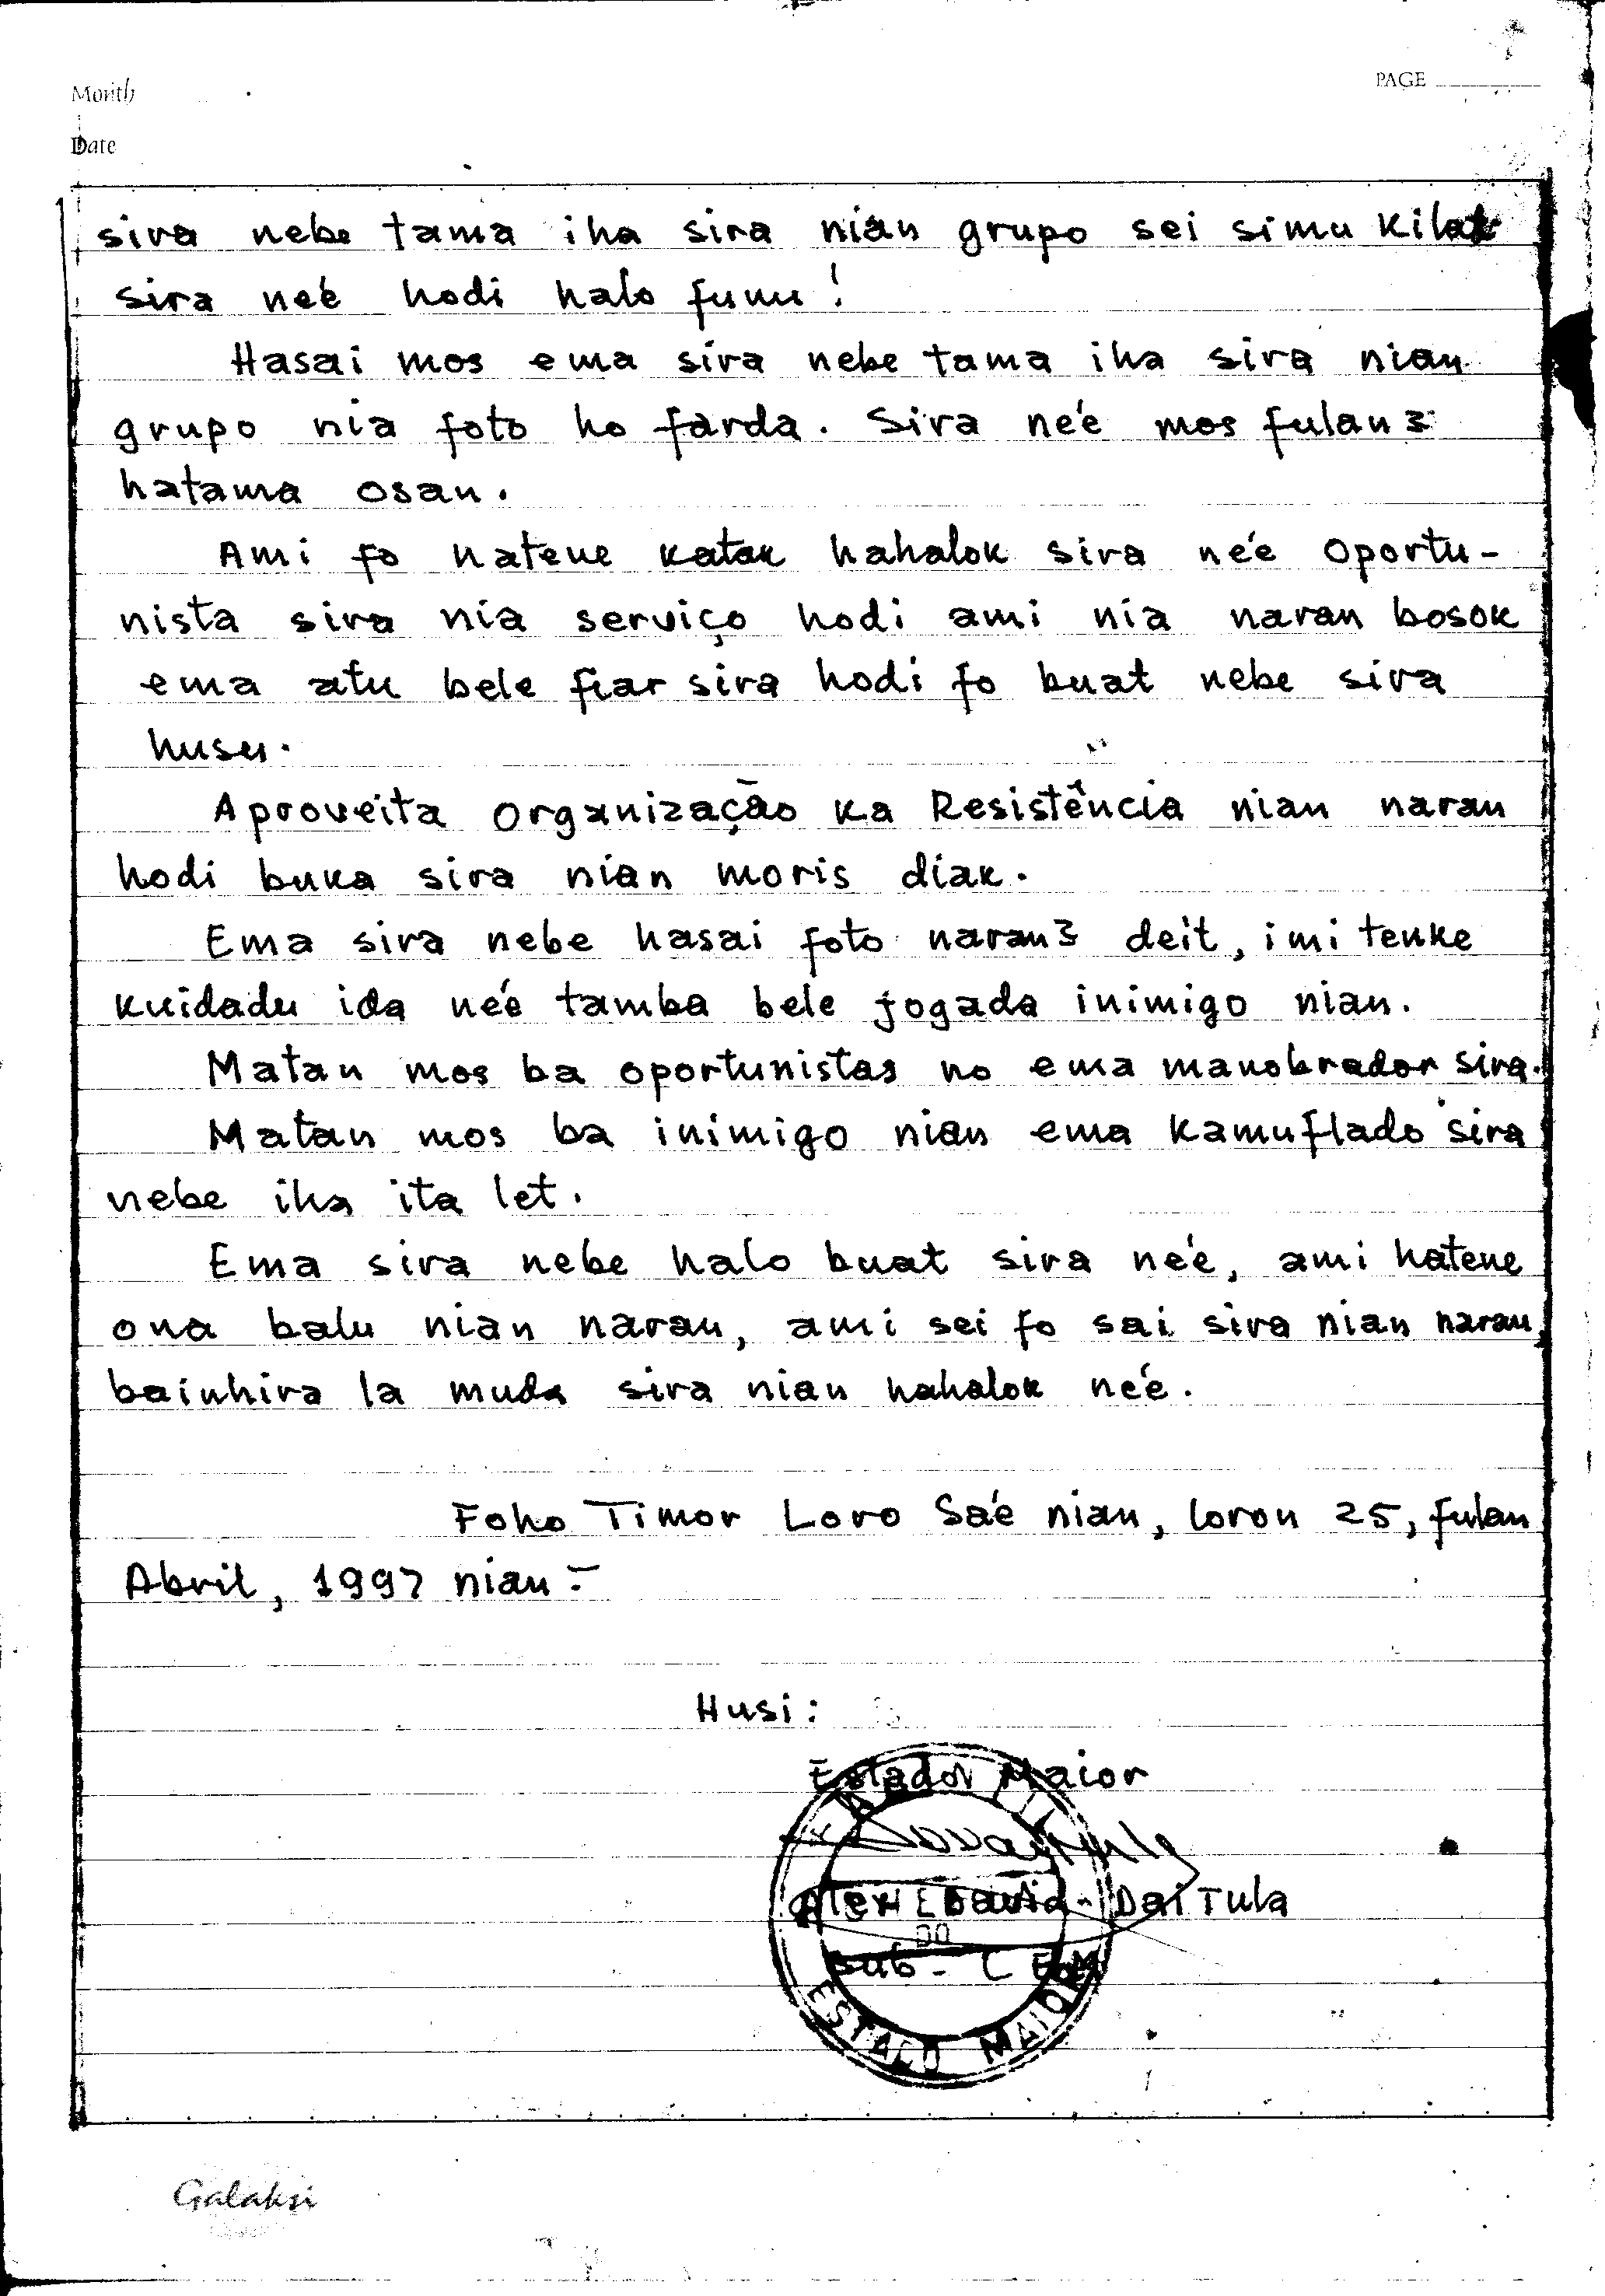 Month
PAGE
Date
sira nebe tama iha sira nián grupo sei simu kilat
sira neé hodi halo funu!
Hasai mos ema sira nebe tama iha sira nian
grupo nia foto ho farda. Sira neé mos fulan2
hatama osan.
Ami fo hatene katak hahalok sira neé oportu-
nista sira nia serviço hodi ami nia naran bosok
ema atu bele fiar sira hodi fo buat nebe sira
husu.
Aproveita organização ka Resistência nian naran
hodi buka sira nian moris diak.
Ema sira nebe hasai foto naran2 deit, imi tenke
kuidadu ida neé tamba bele jogada inimigo nian.
Matan mos ba oportunistas no ema manobrador sira.
Matan mos ba inimigo nian ema kamuflado sira
nebe iha ita let.
Ema sira nebe halo buat sira neé, ami hatene
ona balu nian naran, ami sei fo sai sira nian naran
bainhira la muda sira nian hahalok neé.
Foho Timor Loro Saé nian, loron 25, fulan
Abril, 1997 nian.-
Husi:
Estador Maior
Alex David - DaiTula
DO
Sub - C EM
ESTADO MAIOR
Galaksi